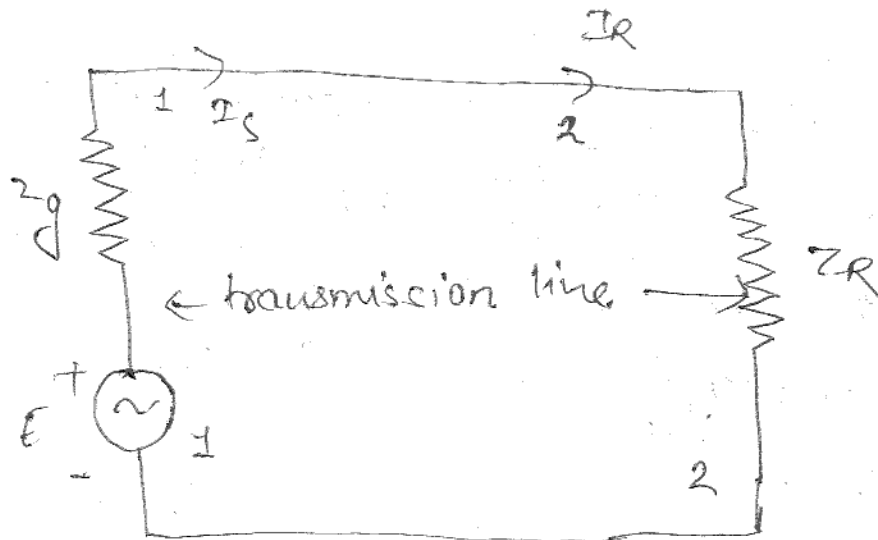 IR
1 IS 2
Zg
ZR
← transmission line →
+
E 1
- 2